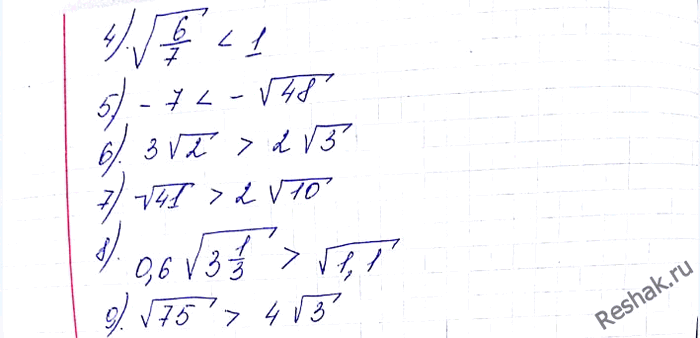 4). √(6/7) < 1
5) - 7 < - √48
6). 3√2 > 2√3
7) √41 > 2√10
8). 0,6 √(3 1/3) > √1,1
9). √75 > 4√3
Reshak.ru